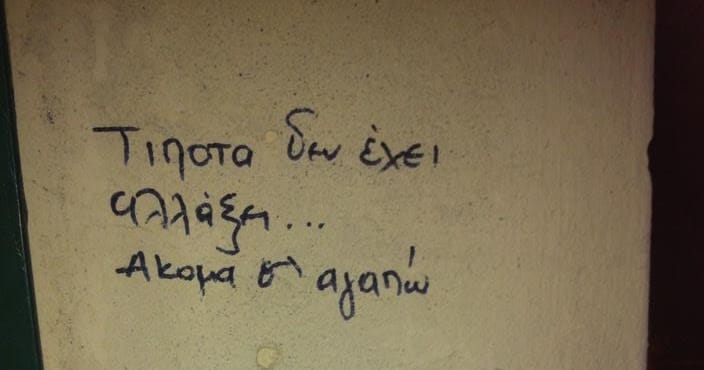 Τιποτα δεν έχει
αλλάξει...
Ακομα σ' αγαπώ